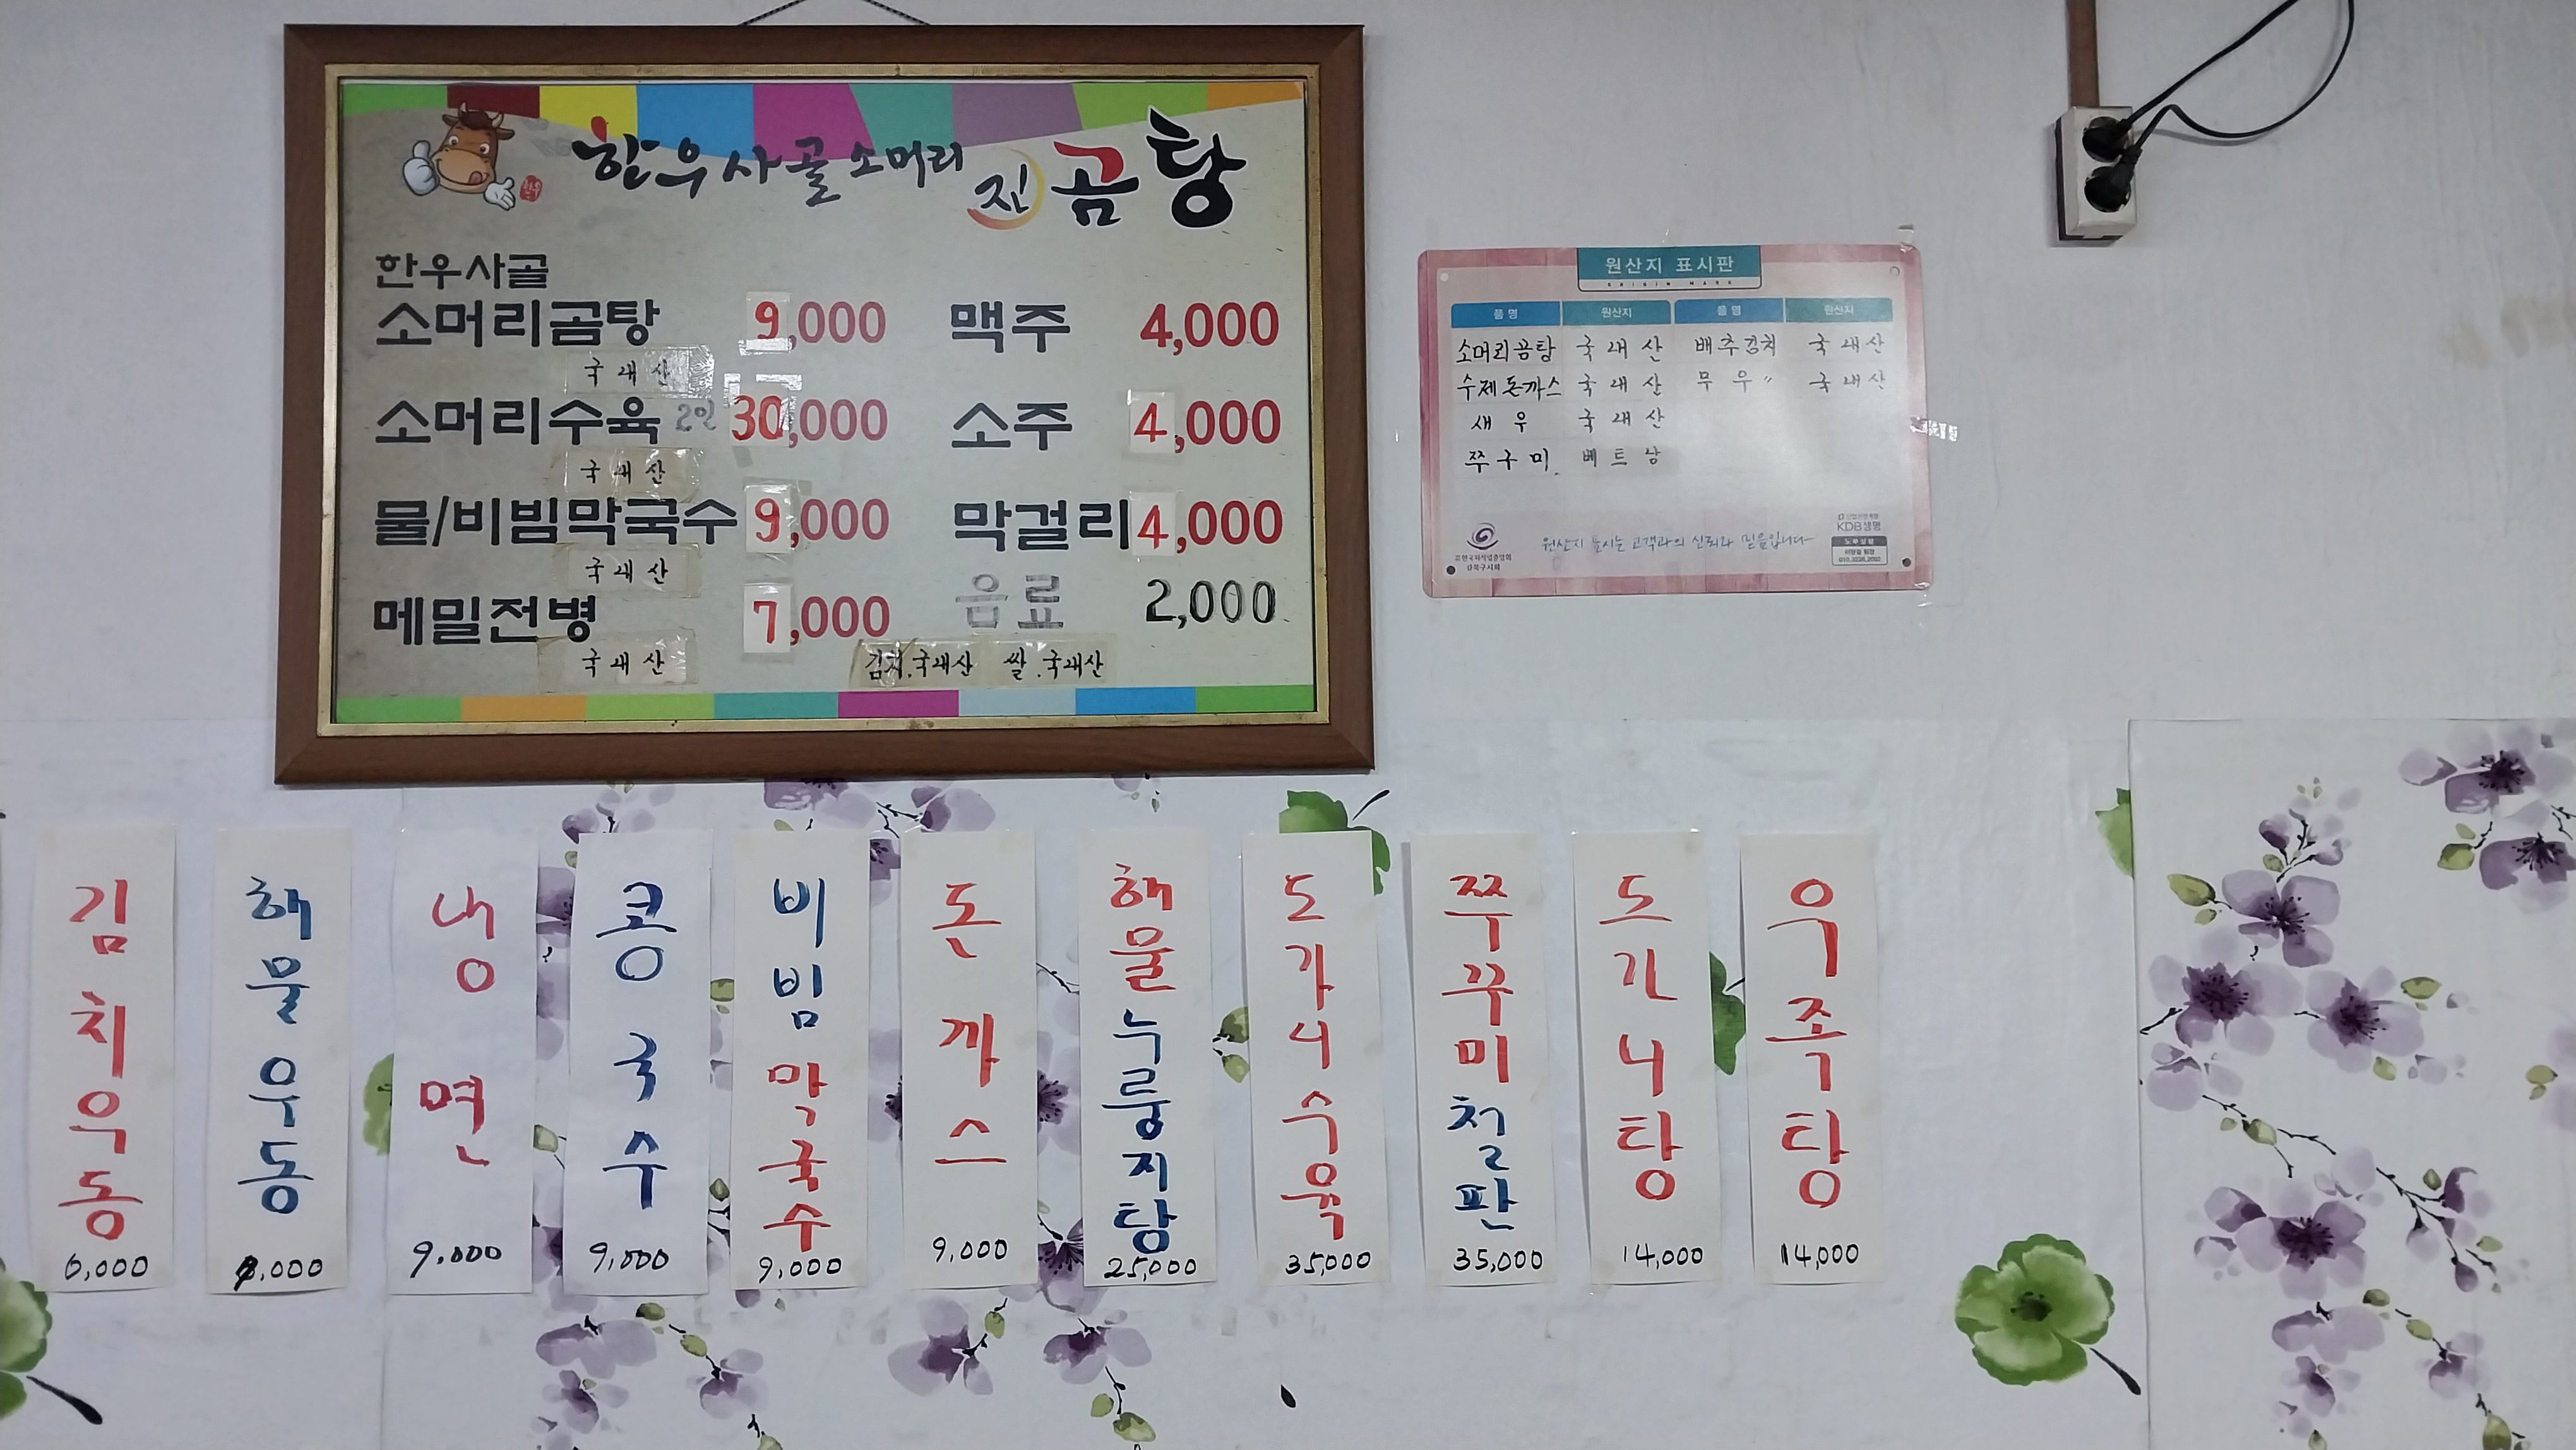 한우사골 소머리 진곰탕
한우사골
소머리곰탕 9,000
국내산
소머리수육 2인 30,000
국내산
물/비빔막국수 9,000
국내산
메밀전병 7,000
국내산
맥주 4,000
소주 4,000
막걸리 4,000
음료 2,000
김치.국내산 쌀.국내산
원산지 표시판
ORIGIN MARK
품명 원산지 품명 원산지
소머리곰탕 국내산 배추김치 국내산
수제돈까스 국내산 무우 〃 국내산
새우 국내산
쭈구미 베트남
원산지 표시는 고객과의 신뢰와 믿음입니다
강북구지회
KDB생명
김치우동
6,000
해물우동
,000
냉면
9,000
콩국수
9,000
비빔막국수
9,000
돈까스
9,000
해물누룽지탕
25,000
도가니수육
35,000
쭈꾸미철판
35,000
도가니탕
14,000
우족탕
14,000